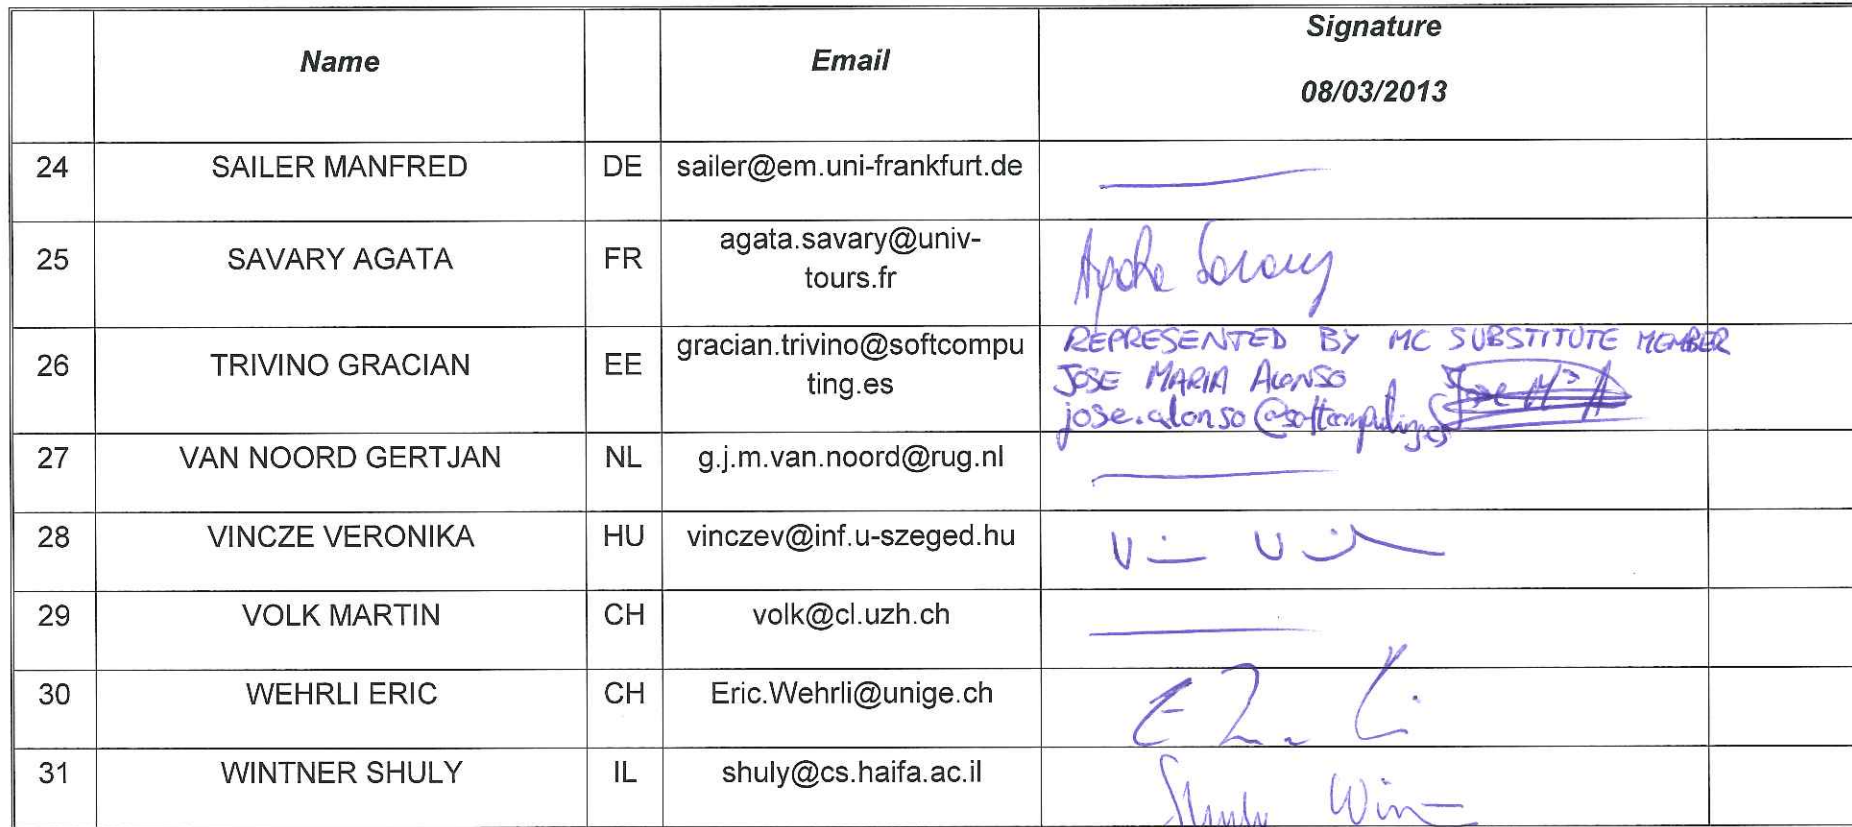 Name Email Signature
08/03/2013
24 SAILER MANFRED DE sailer@em.uni-frankfurt.de
25 SAVARY AGATA FR agata.savary@univ-
tours.fr Agata Savary
26 TRIVINO GRACIAN EE gracian.trivino@softcompu
ting.es
REPRESENTED BY MC SUBSTITUTE MEMBER
JOSE MARIA ALONSO
jose.alonso@softcomputing.es
27 VAN NOORD GERTJAN NL g.j.m.van.noord@rug.nl
28 VINCZE VERONIKA HU vinczev@inf.u-szeged.hu
29 VOLK MARTIN CH volk@cl.uzh.ch
30 WEHRLI ERIC CH Eric.Wehrli@unige.ch
31 WINTNER SHULY IL shuly@cs.haifa.ac.il Shuly Win